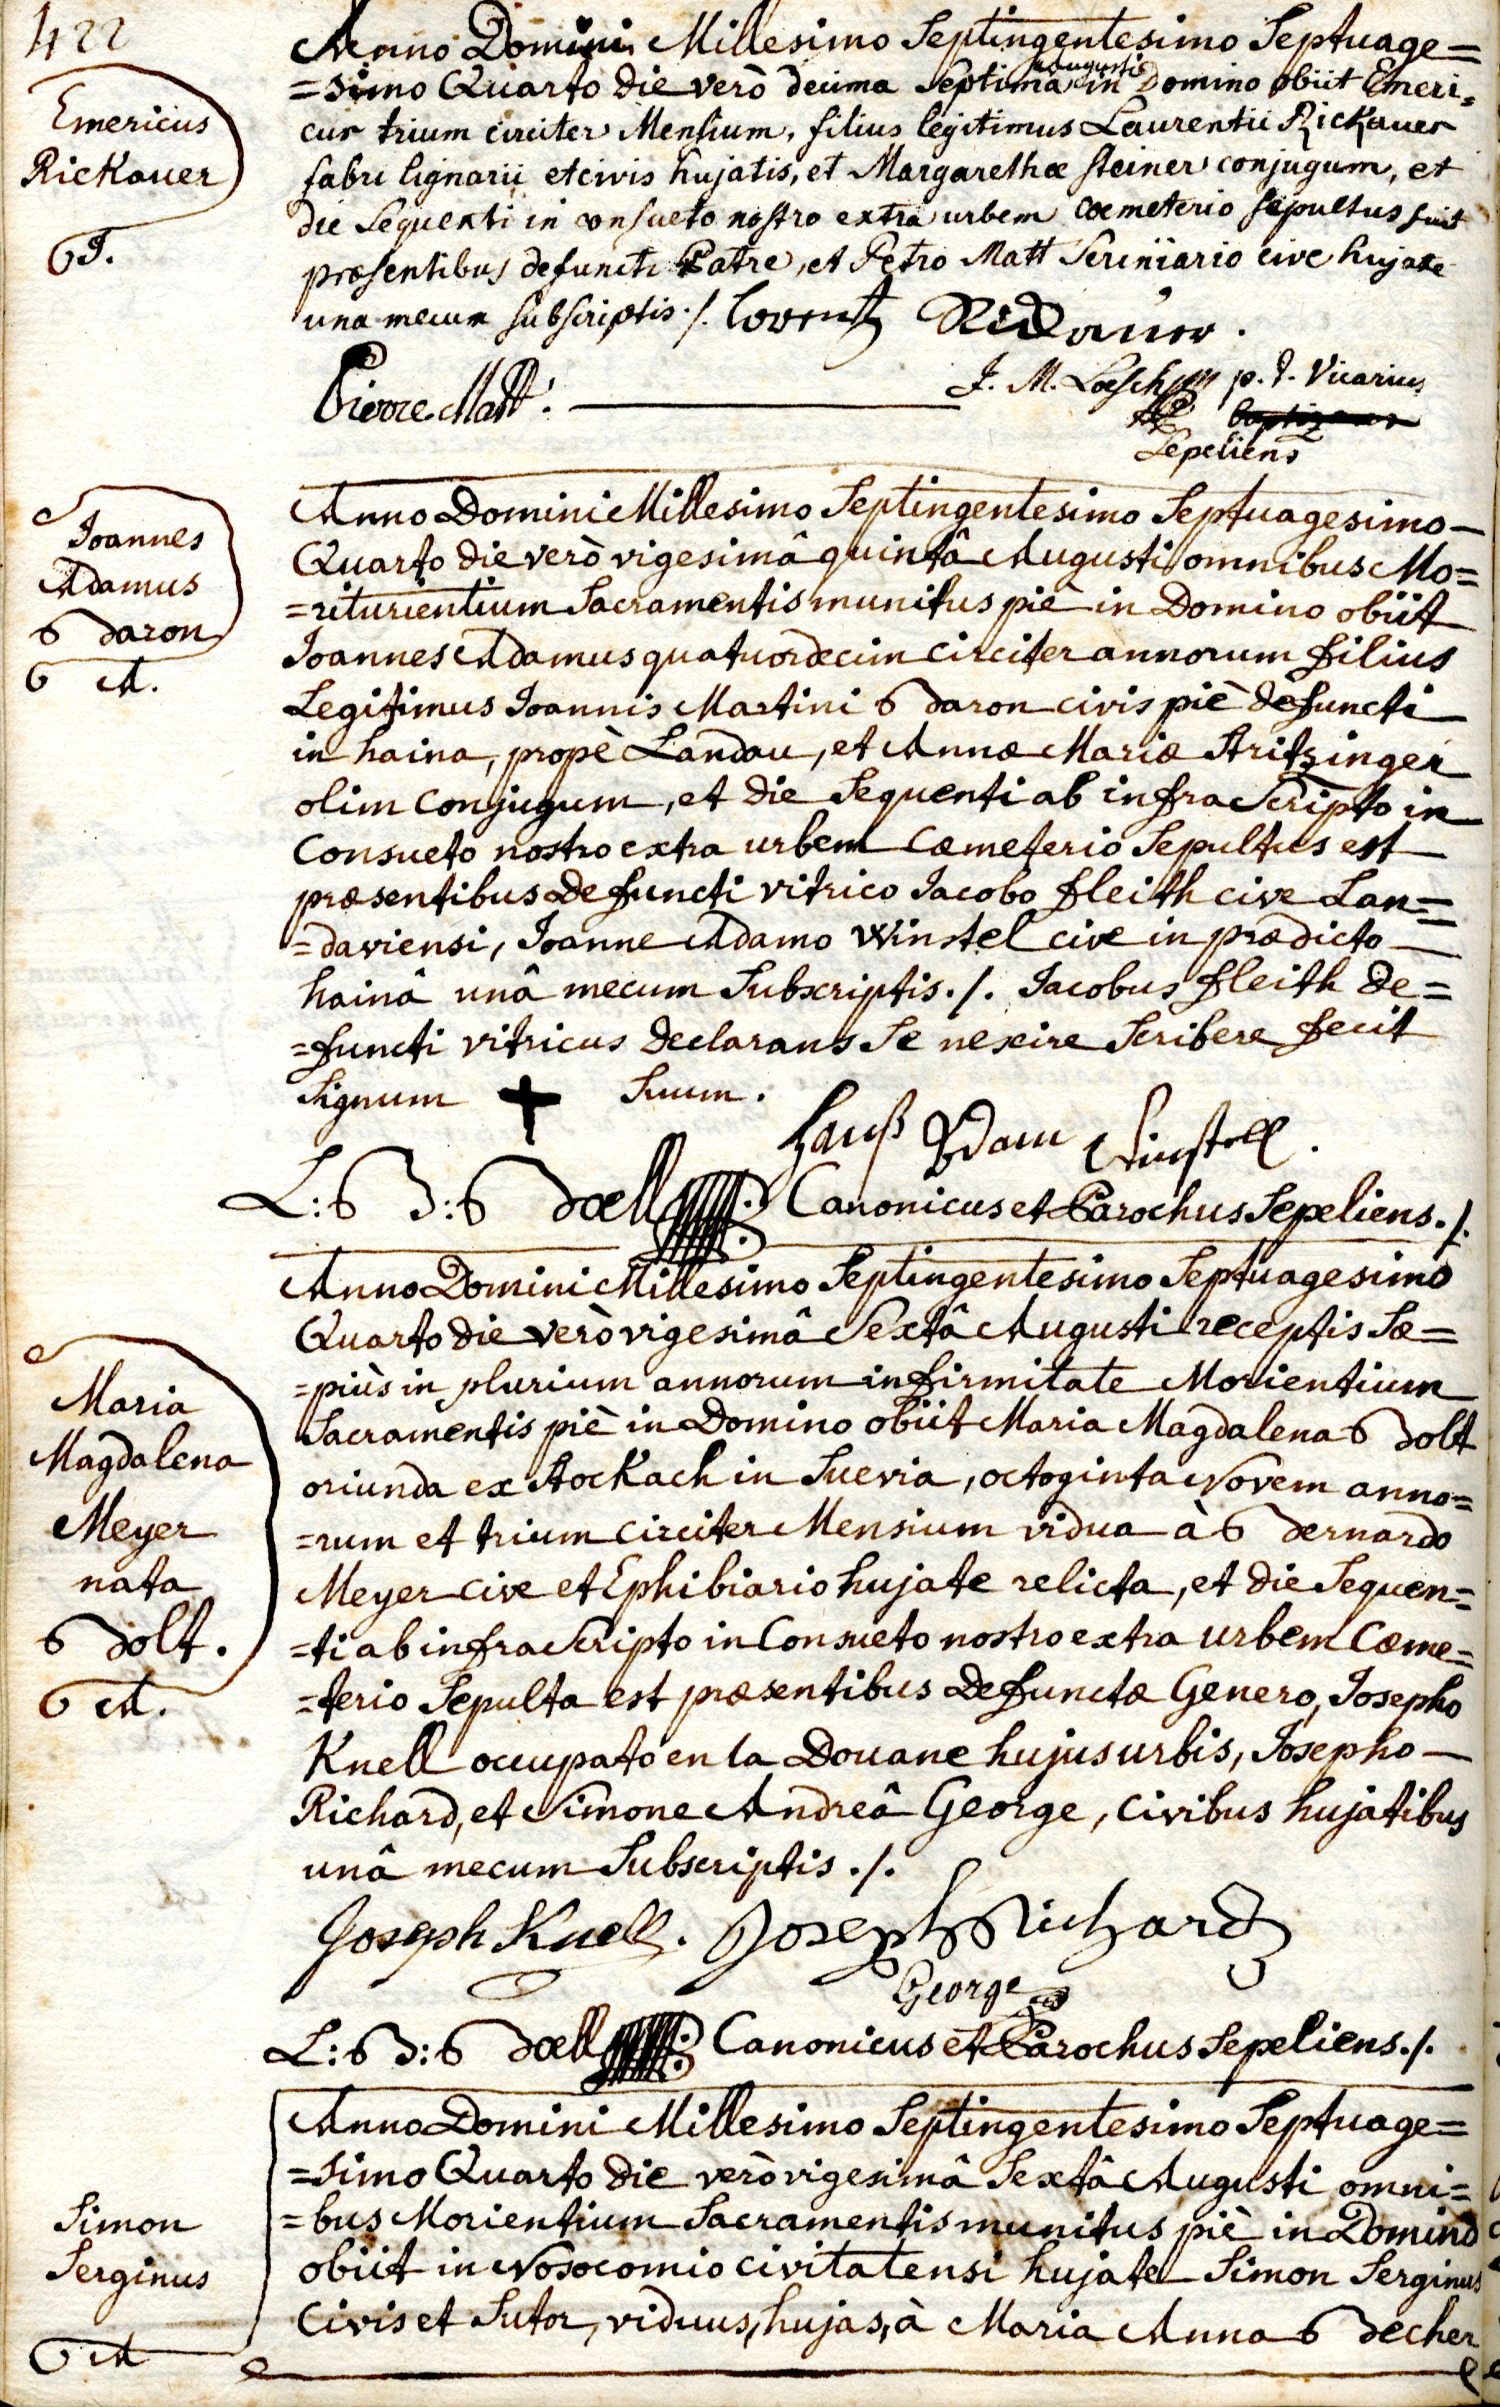 422
Anno Domini Millesimo Septingentesimo Septuage=
=simo Quarto die verò decima Septima augusti in Domino obiit Emeri=
cus trium circiter Mensium, filius legitimus Laurentii Rickauer
fabri lignarii et civis hujatis, et Margarethæ Steiner conjugum, et
die Sequenti in consueto nostro extra urbem coemeterio sepultus fuit
præsentibus defuncti Patre, et Petro Matt Scriniario cive hujate
una mecum subscriptis ./. Lorentz Rickauer.
Emericus
Rickauer
Pierre Matt.
J. M. Loeschman p. t. Vicarius
Sepeliens
Joannes
Adamus
Baron
A.
Anno Domini Millesimo Septingentesimo Septuagesimo
Quarto die verò vigesimâ quintâ Augusti omnibus Mo=
=riturientium Sacramentis munitus piè in Domino obiit
Joannes Adamus quatuordecim circiter annorum filius
Legitimus Joannis Martini Baron civis piè defuncti
in haina, propè Landau, et Annæ Mariæ Stritzinger
olim conjugum, et die Sequenti ab infra Scripto in
Consueto nostro extra urbem Cœmeterio Sepultus est
præsentibus Defuncti vitrico Jacobo fleith cive Lan=
=daviensi, Joanne Adamo Winstel cive in prædicto
hainâ unâ mecum Subscriptis ./. Jacobus fleith de=
=functi vitricus declarans Se nescire Scribere fecit
Signum + Suum.
Hanß Adam Winstell.
L: B: Bœll Canonicus et Parochus Sepeliens ./.
Maria
Magdalena
Meyer
nata
Bolt.
A.
Anno Domini Millesimo Septingentesimo Septuagesimo
Quarto die verò vigesimâ Sextâ Augusti receptis Sæ=
=piùs in plurium annorum infirmitate Morientium
Sacramentis piè in Domino obiit Maria Magdalena Bolt
oriunda ex Stockach in Suevia, octoginta Novem anno=
=rum et trium circiter Mensium vidua à Bernardo
Meyer cive et Ephibiario hujate relicta, et die Sequen=
=ti ab infra Scripto in Consueto nostro extra urbem Cœme=
=terio Sepulta est præsentibus Defunctæ Genero, Josepho
Knell occupato en la Douane hujus urbis, Josepho
Richard, et Simone Andreâ George, Civibus hujatibus
unâ mecum Subscriptis ./.
Joseph Knell. Joseph Richard
George
L: B: Bœll Canonicus et Parochus Sepeliens ./.
Simon
Serginus
A
Anno Domini Millesimo Septingentesimo Septuage=
=simo Quarto die verò vigesimâ Sextâ Augusti omni=
=bus Morientium Sacramentis munitus piè in Domino
obiit in Nosocomio civitatensi hujate Simon Serginus
Civis et Sutor, viduus, hujas, à Maria Anna Becher